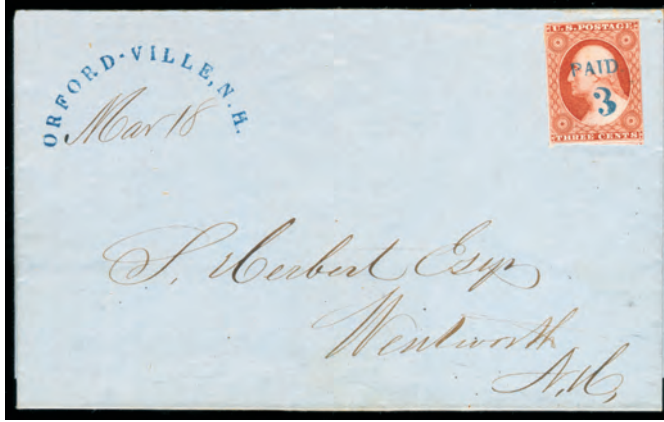 ORFORD-VILLE, N.H.
Mar 18
U.S. POSTAGE
PAID
3
THREE CENTS
S. Herbert Esqr
Wentworth
N.H.